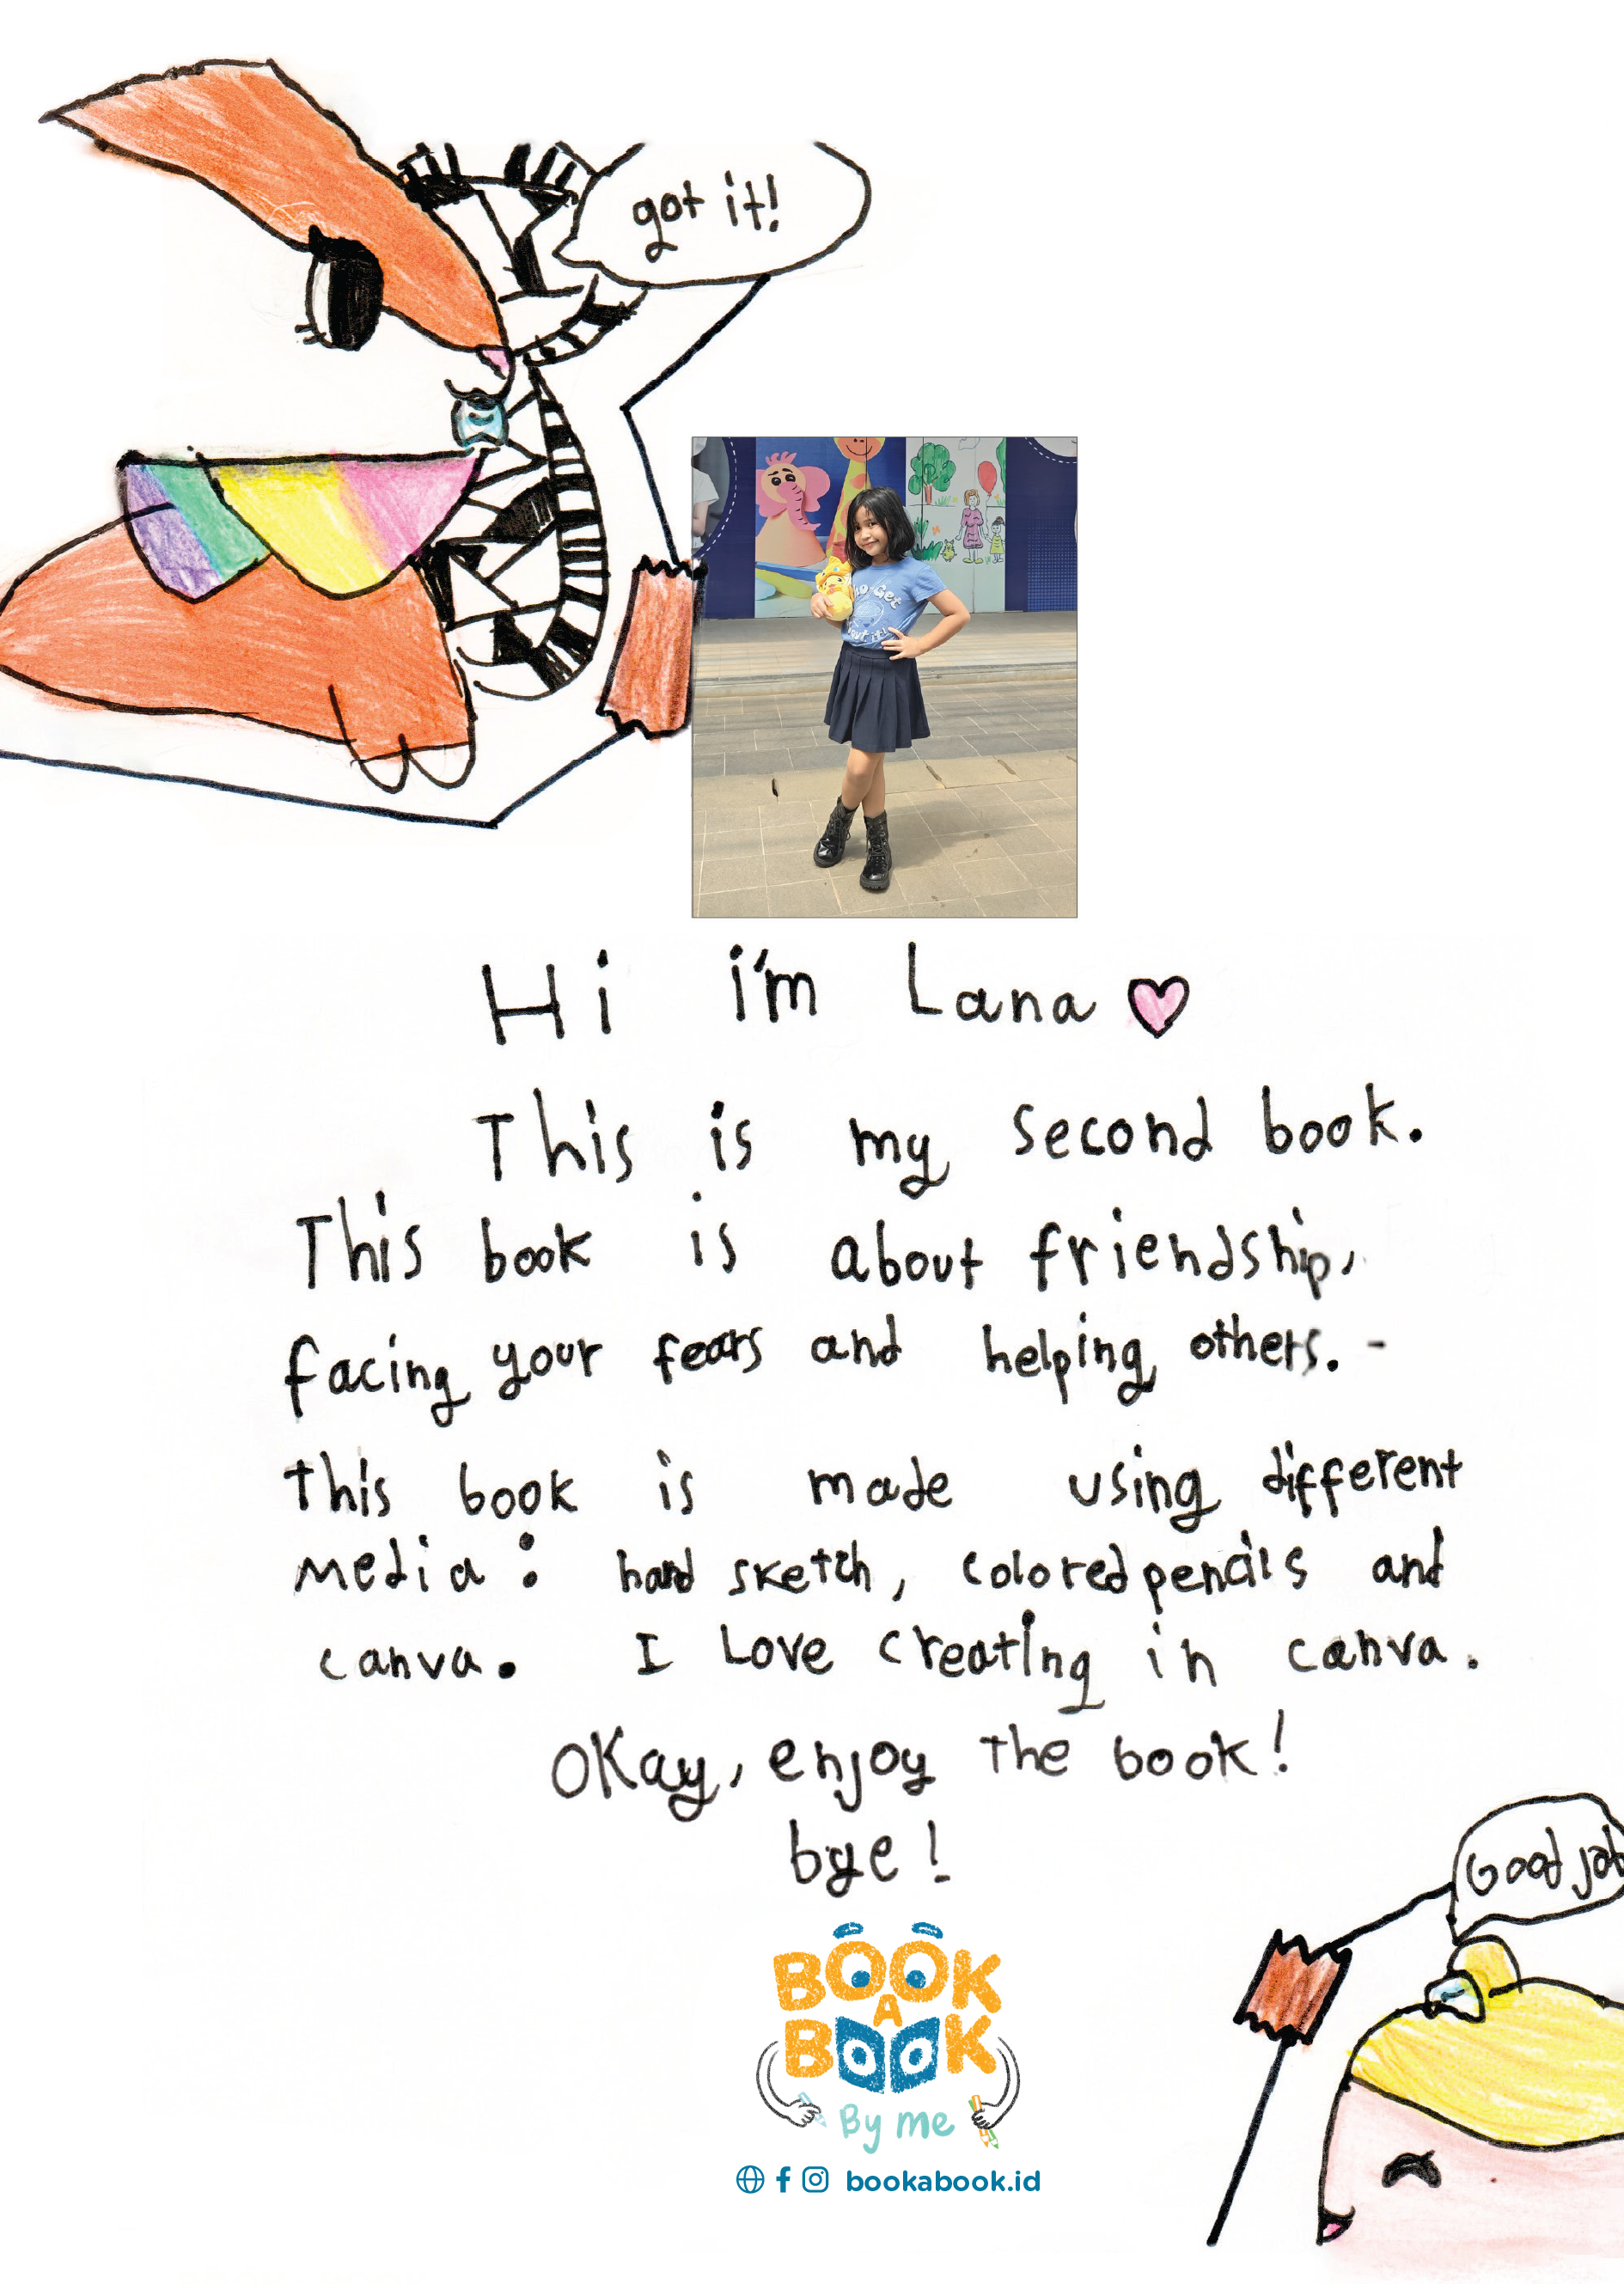 got it!
Hi i'm Lana
This is my second book.
This book is about friendship,
facing your fears and helping others. -
This book is made using different
media : hand sketch, colored pencils and
canva. I Love creating in canva.
Okay, enjoy the book!
bye!
Good job
BOOK
A
BOOK
By me
bookabook.id